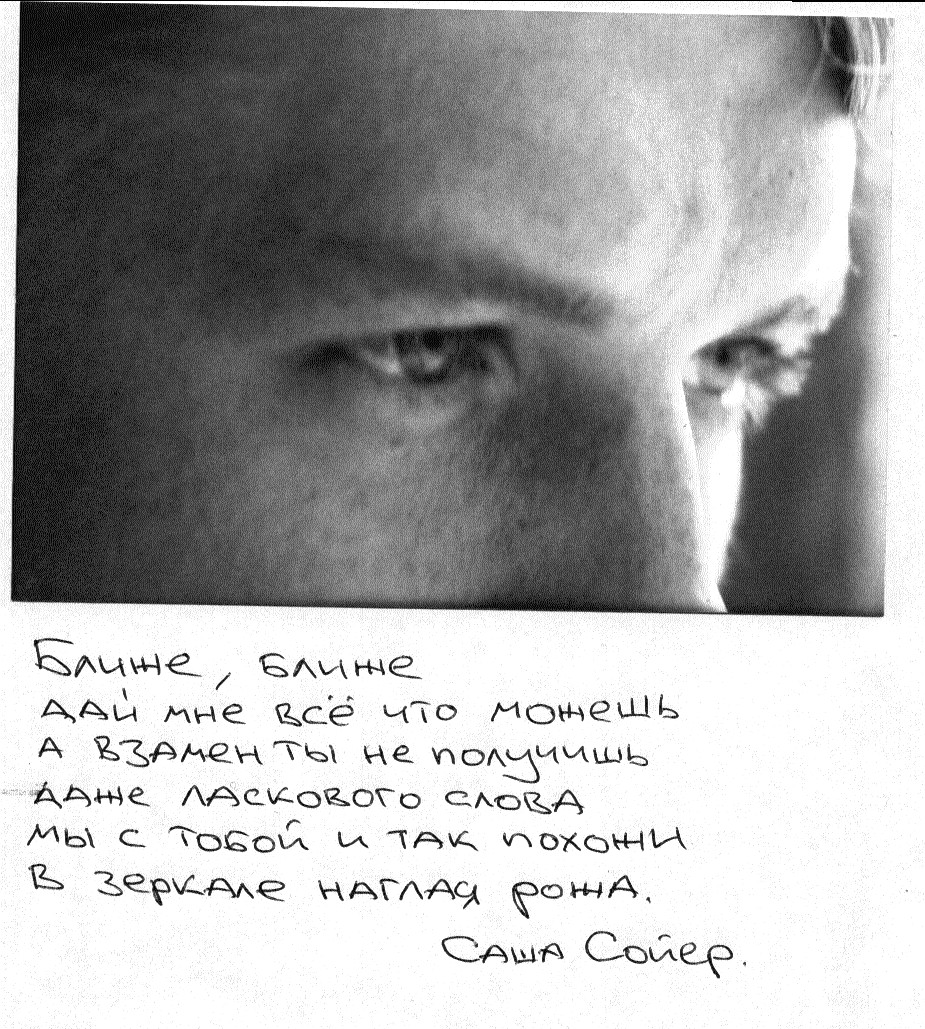 Ближе, ближе
дай мне всё что можешь
А взамен ты не получишь
даже ласкового слова
мы с тобой и так похожи
В зеркале наглая рожа.
Саша Сойер.